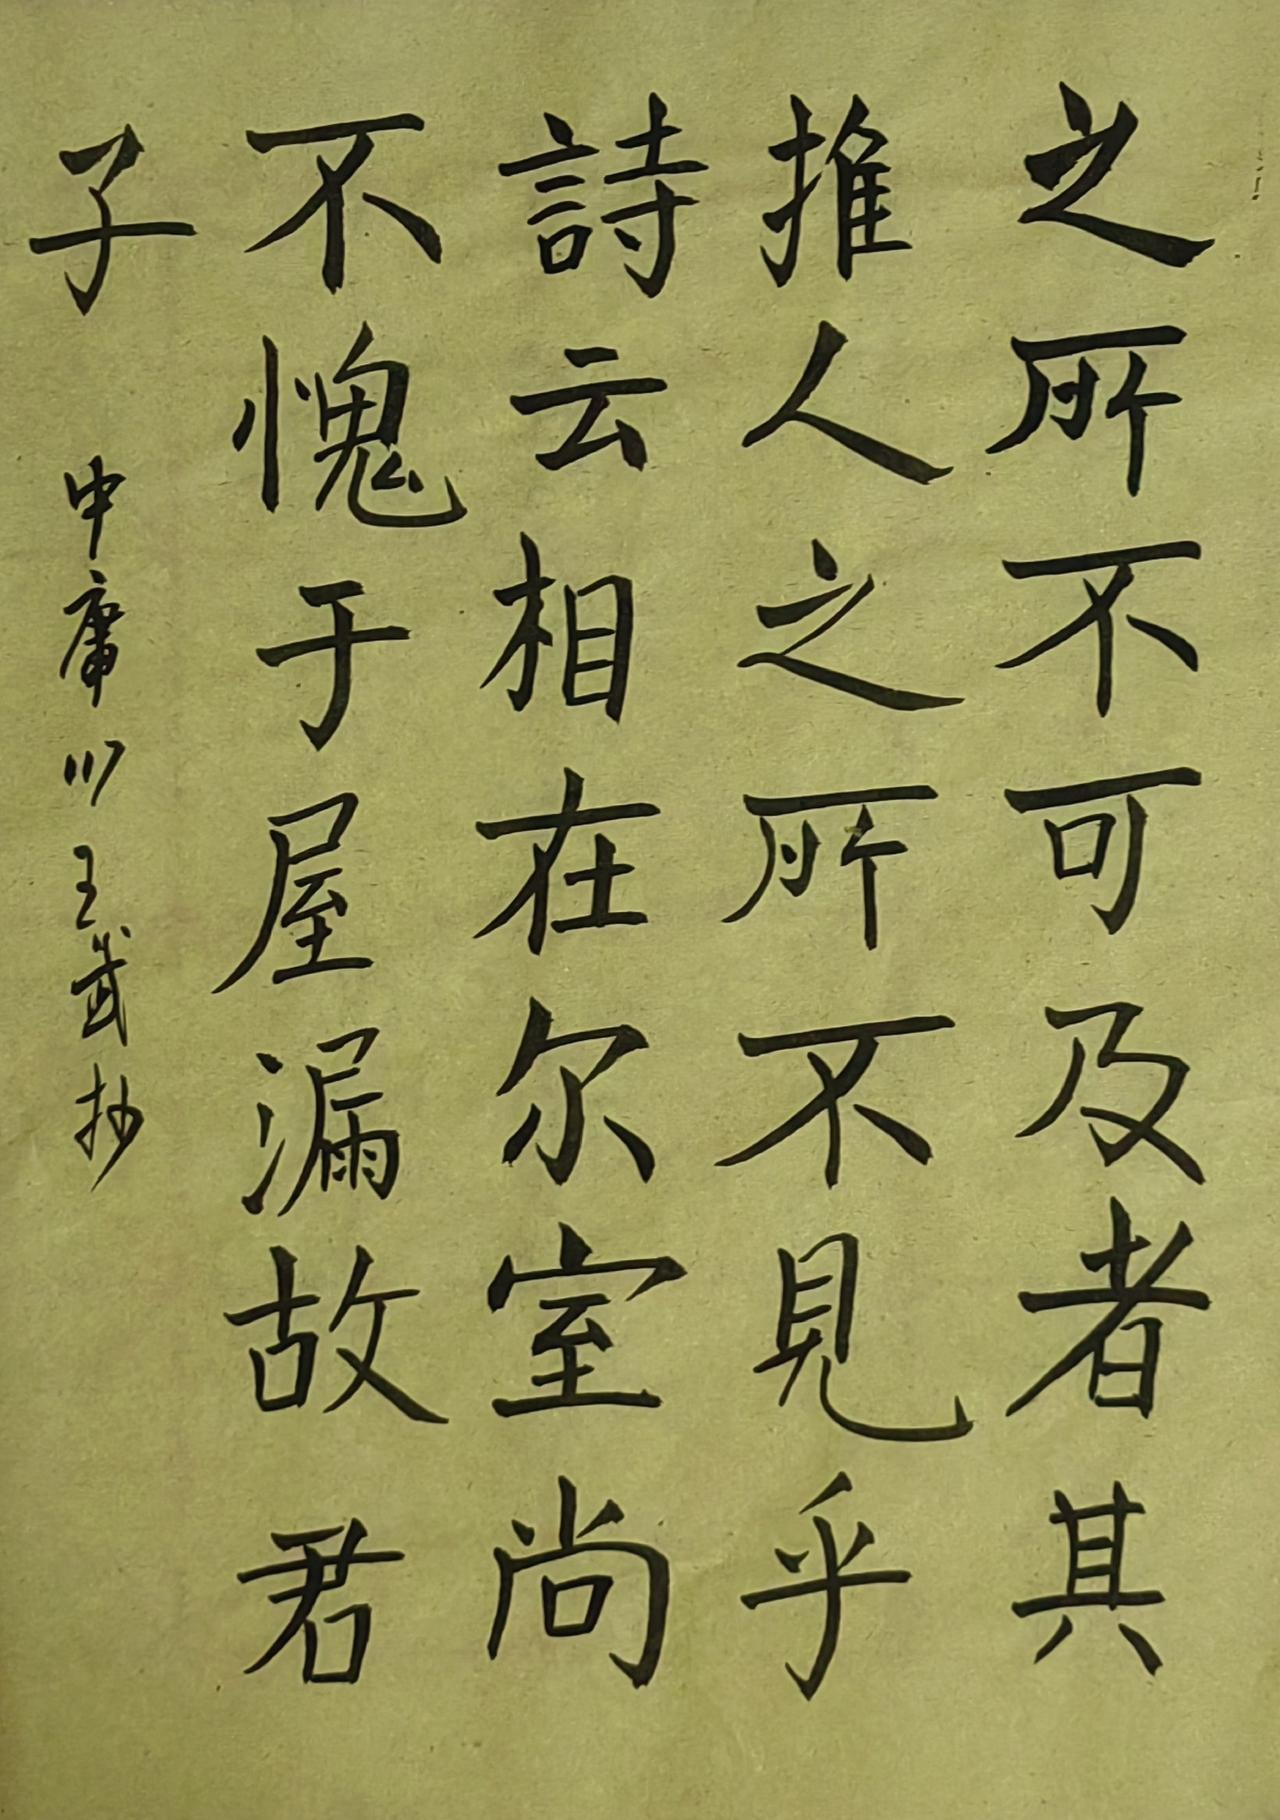 之所不可及者其
推人之所不見乎
詩云相在尔室尚
不愧于屋漏故君
子
中庸川王武抄